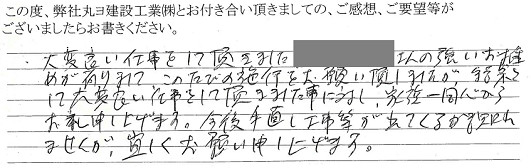 この度、弊社丸ヨ建設工業㈱とお付き合い頂きましての、ご感想、ご要望等が
ございましたらお書きください。
・大変良い仕事をして頂きました さんの強いお進
めが有りまして、このたびの施行をお願い頂しましたが、結果と
して大変良い仕事をして頂きました事に対し、家族一同心から
お礼申し上げます。今後手直し工事等が出てくるかも知れ
ませんが、宜しくお願い申し上げます。